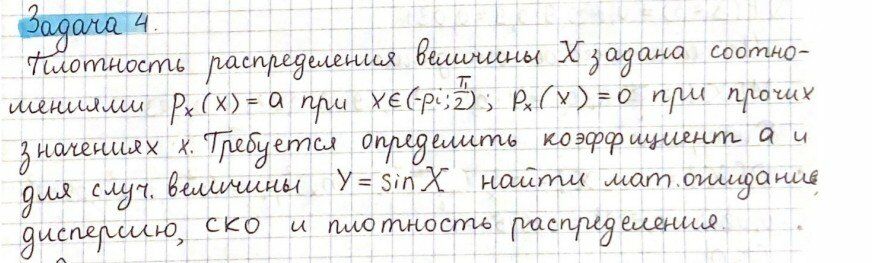 Задача 4.
Плотность распределения величины X задана соотно-
шениями pₓ(x) = a при x∈(-pi; π/2); pₓ(x) = 0 при прочих
значениях x. Требуется определить коэффициент a и
для случ. величины Y = sin X найти мат. ожидание
дисперсию, СКО и плотность распределения.